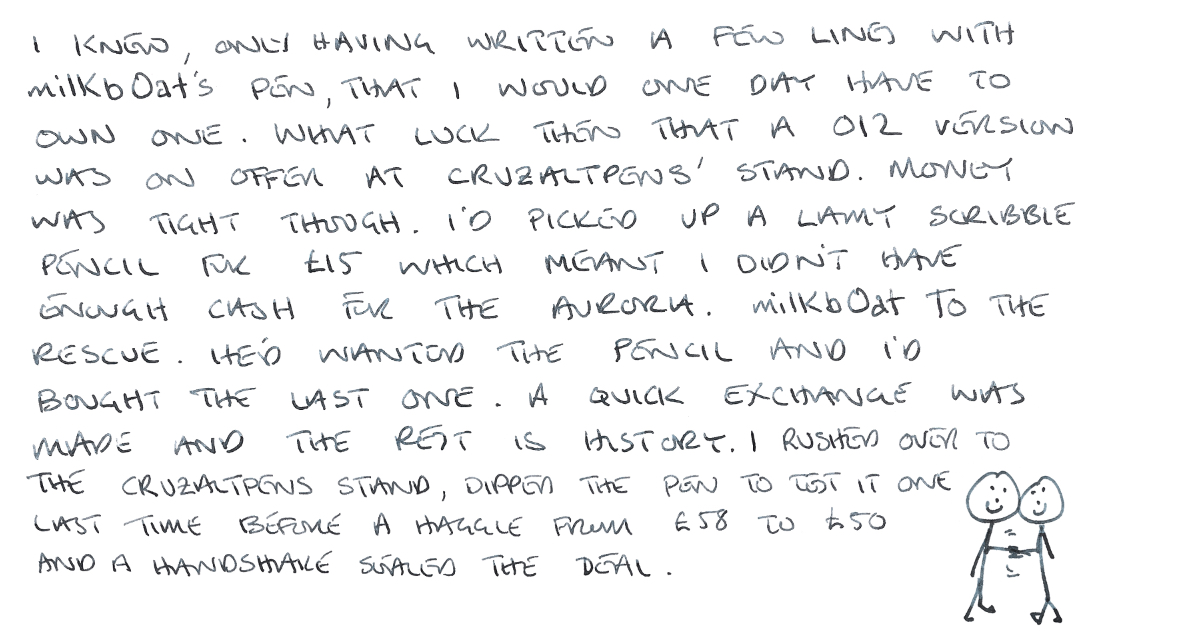 I KNEW, ONLY HAVING WRITTEN A FEW LINES WITH
milKbOat's PEN, THAT I WOULD ONE DAY HAVE TO
OWN ONE. WHAT LUCK THEN THAT A 012 VERSION
WAS ON OFFER AT CRUZALTPENS' STAND. MONEY
WAS TIGHT THOUGH. I'D PICKED UP A LAMY SCRIBBLE
PENCIL FOR £15 WHICH MEANT I DIDN'T HAVE
ENOUGH CASH FOR THE AURORA. milKbOat TO THE
RESCUE. HE'D WANTED THE PENCIL AND I'D
BOUGHT THE LAST ONE. A QUICK EXCHANGE WAS
MADE AND THE REST IS HISTORY. I RUSHED OVER TO
THE CRUZALTPENS STAND, DIPPED THE PEN TO TEST IT ONE
LAST TIME BEFORE A HAGGLE FROM £58 TO £50
AND A HANDSHAKE SEALED THE DEAL.